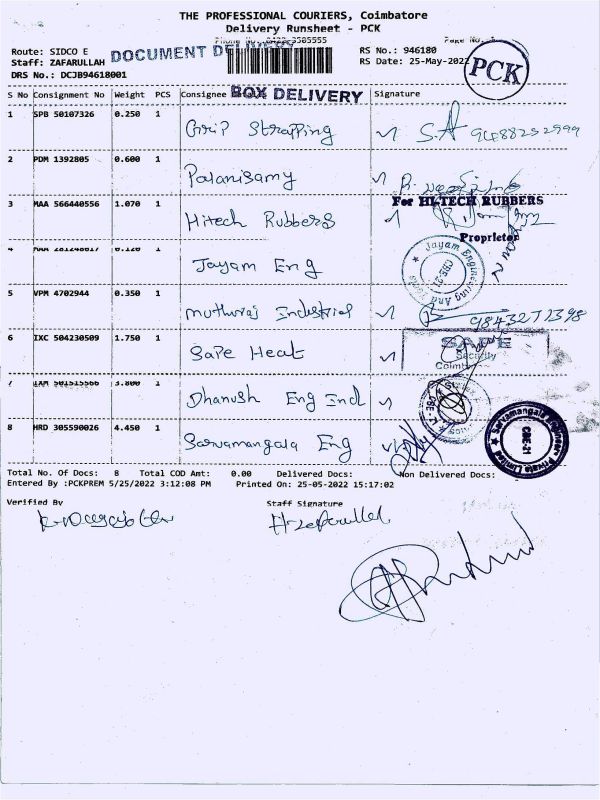 THE PROFESSIONAL COURIERS, Coimbatore
Delivery Runsheet - PCK
Route: SIDCO E DOCUMENT DELIVERY RS No.: 946180
Staff: ZAFARULLAH RS Date: 25-May-2022 PCK
DRS No.: DCJB94618001
S No Consignment No Weight PCS Consignee BOX DELIVERY Signature
1 SPB 50107326 0.250 1 Grip Strapping
2 PDM 1392805 0.600 1 Palanisamy
3 MAA 566440556 1.070 1 Hitech Rubbers For HI-TECH RUBBERS
Proprietor
4 1 Jayam Eng Jayam Engineering And Tools CBE-21
5 VPM 4702944 0.350 1 Muthuraj Industrial 9843271398
6 IXC 504230509 1.750 1 Safe Heat SAFE
Security
7 1 Dhanush Eng Ind
8 HRD 305590026 4.450 1 Sarvamangala Eng Sarvamangala Engineers Private Limited CBE-21
Total No. Of Docs: 8 Total COD Amt: 0.00 Delivered Docs: Non Delivered Docs:
Entered By :PCKPREM 5/25/2022 3:12:08 PM Printed On: 25-05-2022 15:17:02
Verified By Staff Signature